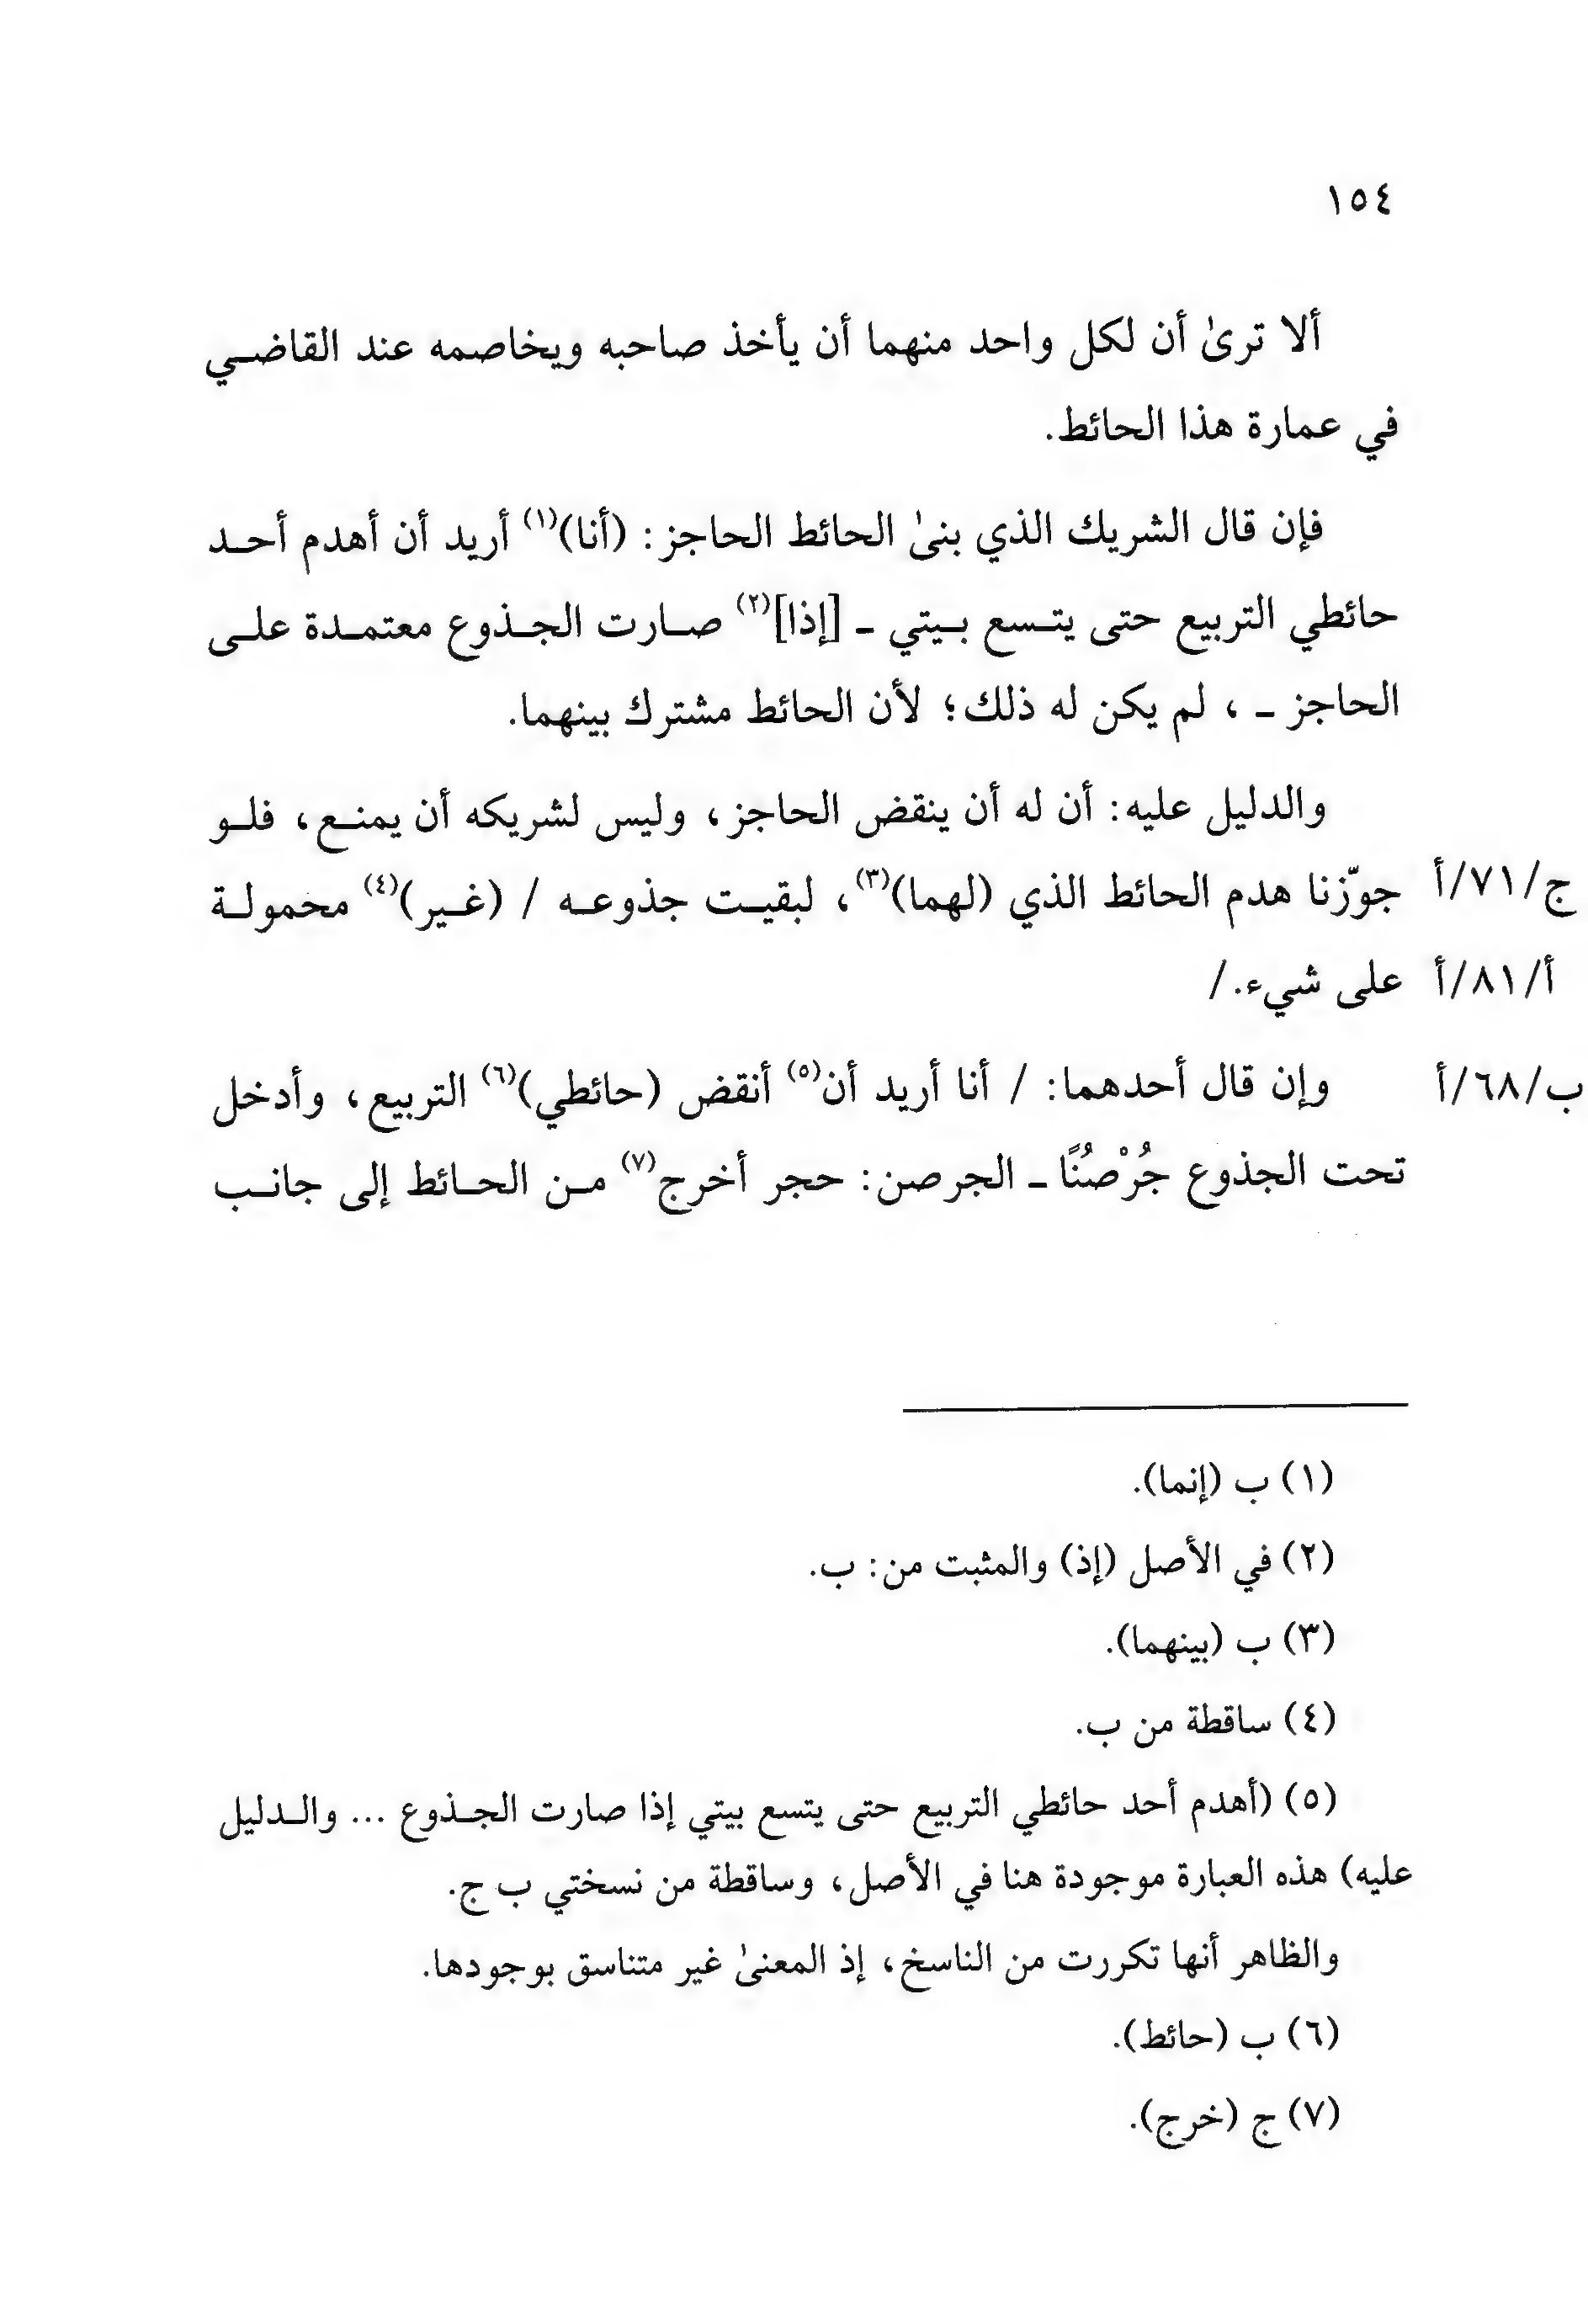 ١٥٤
ألا ترىٰ أن لكل واحد منهما أن يأخذ صاحبه ويخاصمه عند القاضي
في عمارة هذا الحائط.
فإن قال الشريك الذي بنىٰ الحائط الحاجز: (أنا)(١) أريد أن أهدم أحد
حائطي التربيع حتى يتسع بيتي ـ [إذا](٢) صارت الجذوع معتمدة على
الحاجز ـ ، لم يكن له ذلك؛ لأن الحائط مشترك بينهما.
والدليل عليه: أن له أن ينقض الحاجز، وليس لشريكه أن يمنع، فلو
جوّزنا هدم الحائط الذي (لهما)(٣)، لبقيت جذوعه / (غير)(٤) محمولة
ج/٧١/أ
على شيء. /
أ/٨١/أ
وإن قال أحدهما: / أنا أريد أن(٥) أنقض (حائطي)(٦) التربيع، وأدخل
ب/٦٨/أ
تحت الجذوع جُرْصُنًا ـ الجرصن: حجر أخرج(٧) من الحائط إلى جانب
(١) ب (إنما).
(٢) في الأصل (إذ) والمثبت من: ب.
(٣) ب (بينهما).
(٤) ساقطة من ب.
(٥) (أهدم أحد حائطي التربيع حتى يتسع بيتي إذا صارت الجذوع ... والدليل
عليه) هذه العبارة موجودة هنا في الأصل، وساقطة من نسختي ب ج.
والظاهر أنها تكررت من الناسخ، إذ المعنىٰ غير متناسق بوجودها.
(٦) ب (حائط).
(٧) ج (خرج).